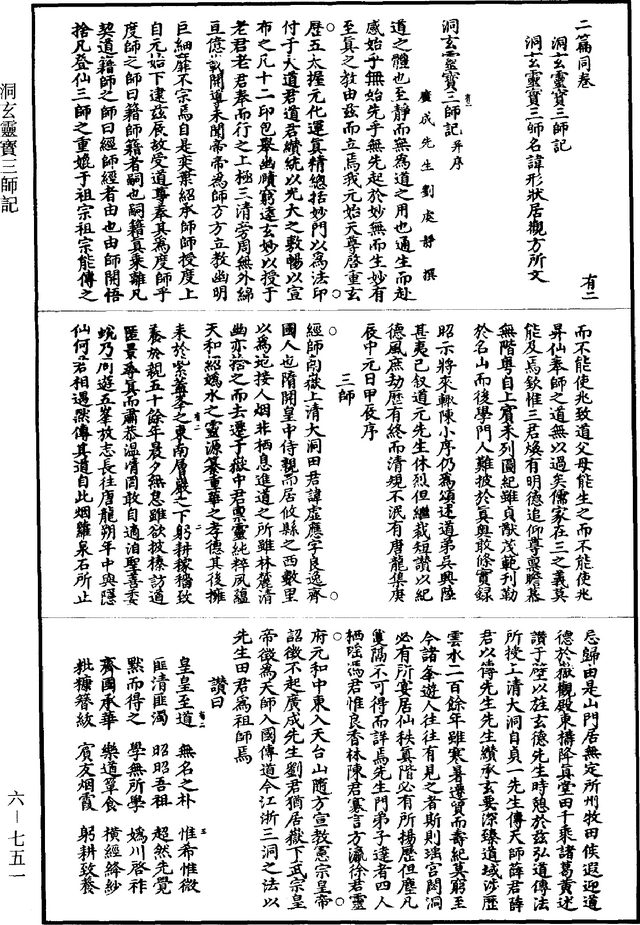 二篇同卷
洞玄靈寶三師記
洞玄靈寶三師名諱形狀居觀方所文
有二
洞玄靈寶三師記并序
有二
廣成先生劉處靜撰
道之體也至靜而無為道之用也通生而赴
感始乎無始先乎無先起於妙無而生妙有
至真之教由茲而立焉我元始天尊啓重玄
歷五太握元化運真精總括妙門以為法印
付于大道君道君纘統以光大之敷暢以宣
布之凡十二印包舉幽賾窮達玄妙以授于
老君老君奉而行之上極三清旁周無外綿
亘億劫開導未聞帝帝為師方方立教幽明
巨細靡不宗焉自是奕葉紹承師師授度上
自元始下逮茲辰故受道尊奉其為度師乎
度師之師曰籍師籍者嗣也嗣籍真乘離凡
契道籍師之師曰經師經者由也由師開悟
捨凡登仙三師之重媲于祖宗祖宗能傳之
而不能使兆致道父母能生之而不能使兆
昇仙奉師之道無以過矣儒家在三之義莫
能及焉欽惟三君煥有明德追仰尊稟瞻慕
無階粵自上賓未列圖紀雖貞猷茂範刊勒
於名山而後學門人難披於真奧敢條實錄
昭示將來輒陳小序仍為頌述道弟吳興陸
甚夷已叙道元先生休烈但繼裁短讚以紀
德風庶劫歷有終而清規不泯有唐龍集庚
辰中元日甲辰序
三師
經師南嶽上清大洞田君諱虛應字良逸齊
國人也隋開皇中侍親而居攸縣之西數里
以為地接人烟非栖息進道之所雖林麓清
幽亦捨之而去遷于嶽中君稟靈純粹夙蘊
天和紹媯水之靈源纂重華之孝德其後擁
耒於紫蓋峯之東南層巖之下躬耕稼穡致
養於親五十餘年晨夕無怠雖欲披榛訪道
匿景尋真而肅恭溫凊罔敢自適洎聖善委
蛻乃周遊五峯放志長往唐龍朔年中與隱
仙何君相遇默傳其道自此烟蘿泉石所止
忘歸由是山門居無定所州牧田侯遐迎道
德於嶽觀殿東禱降真堂田千乘諸葛黃述
讚于壁以旌玄德先生時憩於茲弘道傳法
所授上清大洞自貞一先生傳天師薛君薛
君以傳先生先生纘承玄要深臻道域涉歷
雲水二百餘年雖寒暑遷貿而壽紀莫窮至
今諸條遊人往往有見之者斯則瑤宮閬洞
必有所宴居仙秩真階必有所揚歷但塵凡
實隔不可得而詳焉先生門弟子達者四人
栖瑤馮君惟良香林陳君寡言方瀛徐君靈
府元和中東入天台山隨方宣教憲宗皇帝
詔徵不起廣成先生劉君猶居嶽下武宗皇
帝徵為天師入國傳道今江浙三洞之法以
先生田君為祖師焉
讚曰
皇皇至道　無名之朴　惟希惟微
匪清匪濁　昭昭吾祖　超然先覺
黙而得之　學無所學　媯川啓祚
齊國承華　樂道簞食　橫經絳紗
粃糠簪紱　賓友烟霞　躬耕致養
洞玄靈寶三師記
六－七五一